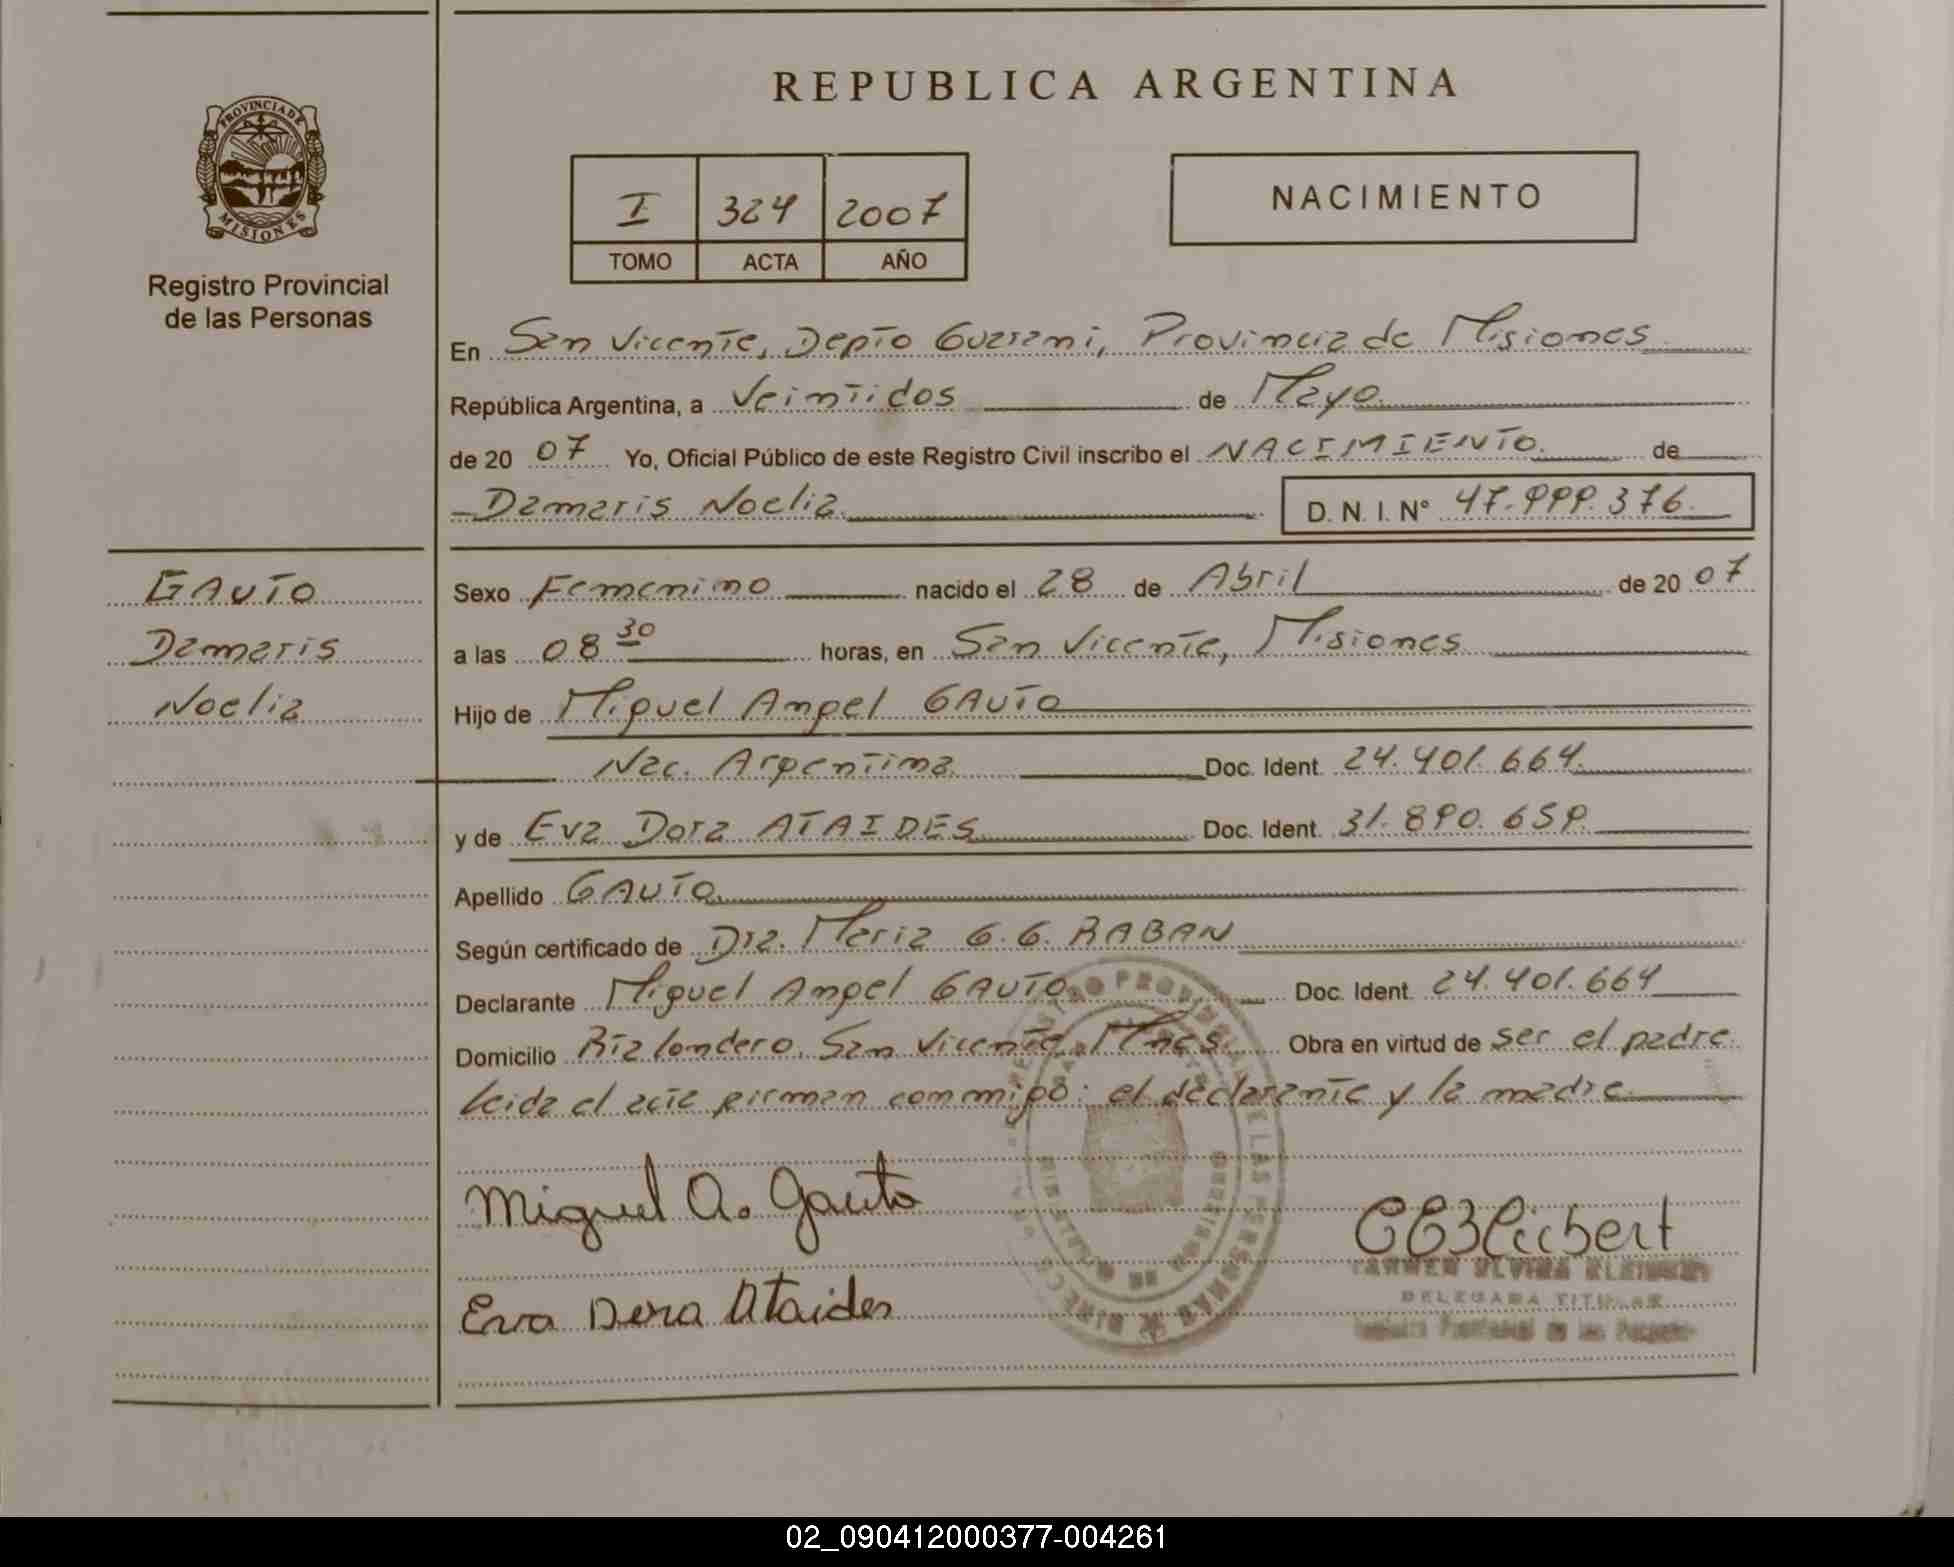 REPUBLICA ARGENTINA
PROVINCIA DE MISIONES
Registro Provincial
de las Personas
I 324 2007
TOMO ACTA AÑO
NACIMIENTO
En San Vicente, Depto Guarani, Provincia de Misiones
República Argentina, a Veintidos de Mayo
de 20 07 Yo, Oficial Público de este Registro Civil inscribo el NACIMIENTO de
Damaris Noelia D. N. I. N° 47.999.376
GAUTO
Damaris
Noelia
Sexo Femenino nacido el 28 de Abril de 20 07
a las 08 30 horas, en San Vicente, Misiones
Hijo de Miguel Angel GAUTO
Nac. Argentina Doc. Ident. 24.401.664
y de Eva Dora ATAIDES Doc. Ident. 31.890.659
Apellido GAUTO
Según certificado de Dra. Maria G. G. RABAN
Declarante Miguel Angel GAUTO Doc. Ident. 24.401.664
Domicilio Rta londero, San Vicente, Mnes. Obra en virtud de ser el padre
Leida el acta firman conmigo: el declarante y la madre
Miguel A. Gauto
Eva Dora Ataides
DELEGADA TITULAR
Registro Provincial de las Personas
02_090412000377-004261